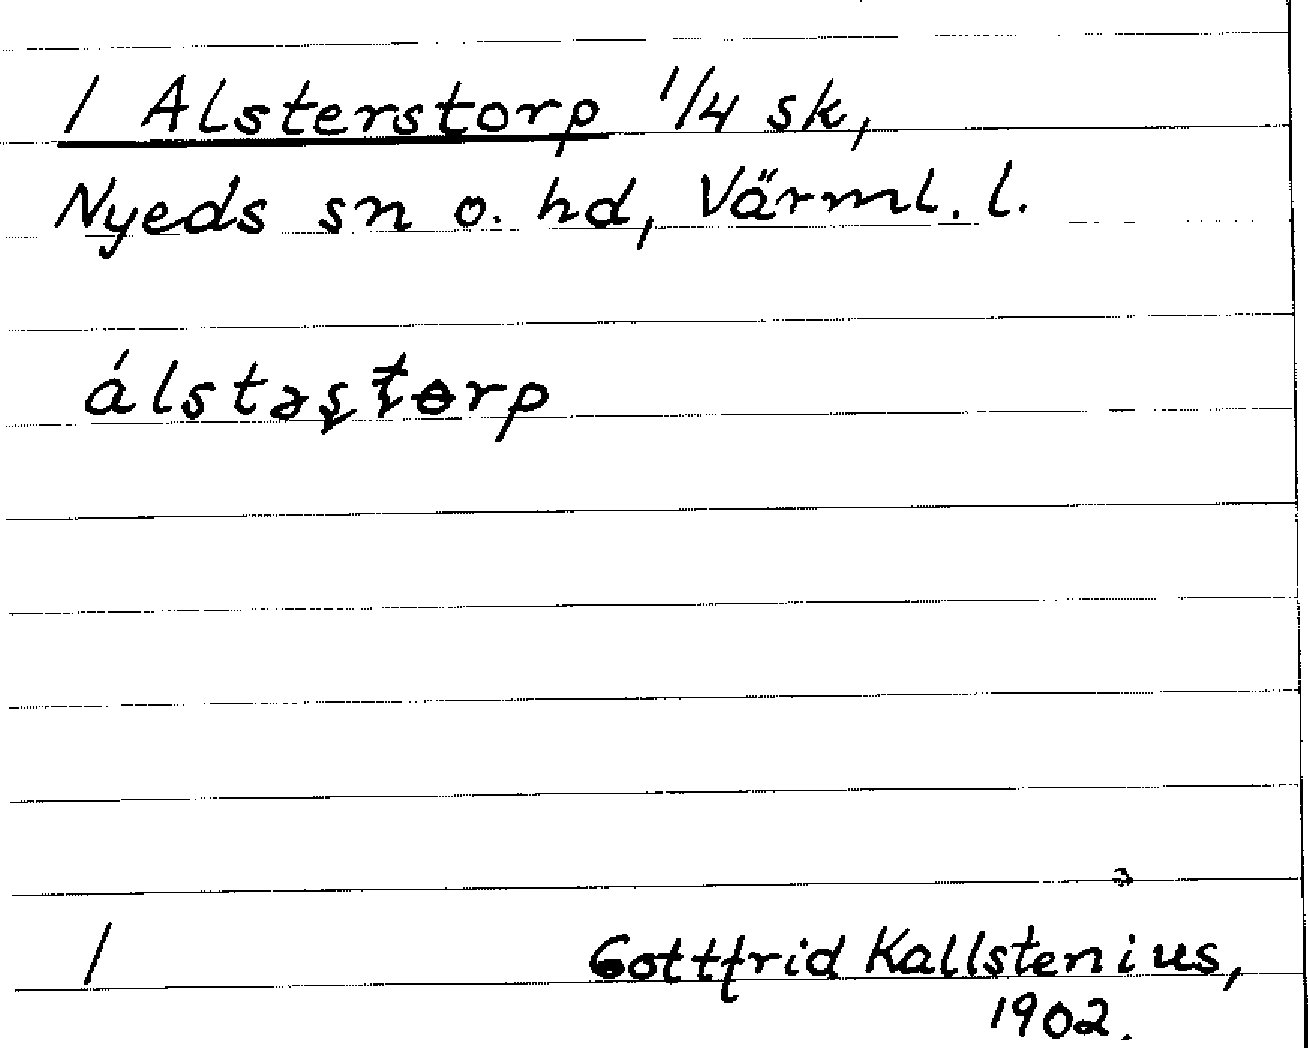 / Alsterstorp 1/4 sk,
Nyeds sn o. hd, Värml. l.
álstəʂʈɵrp
/ Gottfrid Kallstenius,
1902.